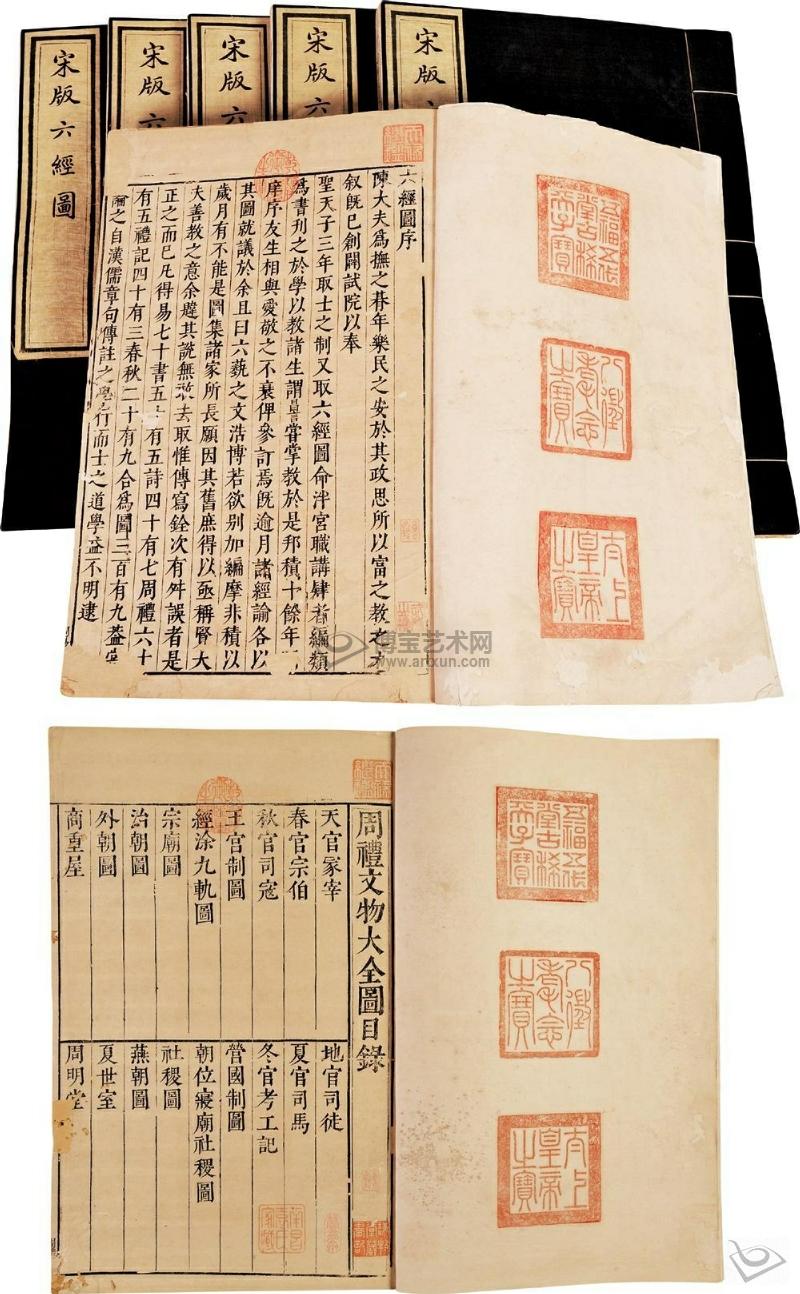 宋版六經圖
宋版六
宋版六
宋版六
宋版六
六經圖序
陳大夫爲撫之朞年樂民之安於其政思所以富之教之方
叙既已創闢試院以奉
聖天子三年取士之制又取六經圖命泮宮職講肄者編類
爲書刊之於學以教諸生謂嘗掌教於是邦積十餘年
庠序友生相與愛敬之不衰俾參訂焉既逾月諸經論各以
其圖就議於余且曰六藝之文浩博若欲别加編摩非積以
歲月有不能是圖集諸家所長願因其舊庶得以亟稱賢大
夫善教之意余韙其說無敢去取惟傳寫銓次有舛誤者是
正之而已凡得易七十書五十有五詩四十有七周禮六十
有五禮記四十有三春秋二十有九合爲圖三百有九蓋嘗
論之自漢儒章句傳註之學行而士之道學益不明逮
五福五代堂古稀天子寶
八徵耄念之寶
太上皇帝之寶
博宝艺术网
www.artxun.com
周禮文物大全圖目錄
天官冢宰
地官司徒
春官宗伯
夏官司馬
秋官司寇
冬官考工記
王宫制圖
營國制圖
經涂九軌圖
朝位寢廟社稷圖
宗廟圖
社稷圖
治朝圖
燕朝圖
外朝圖
夏世室
商重屋
周明堂
五福五代堂古稀天子寶
八徵耄念之寶
太上皇帝之寶